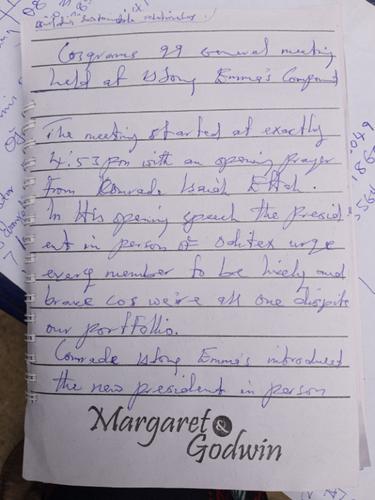 building sustainable relationships.
Cosgrams 99 general meeting
held at Stony Emma's Compound
The meeting started at exactly
4:53pm with an opening prayer
from Comrade Isaiah Ettah.
In His opening speech the presid
ent in person of Oditex urge
every member to be lively and
brave cos we're all one dispite
our portfolio.
Comrade Stony Emma's introduced
the new president in person
Margaret & Godwin